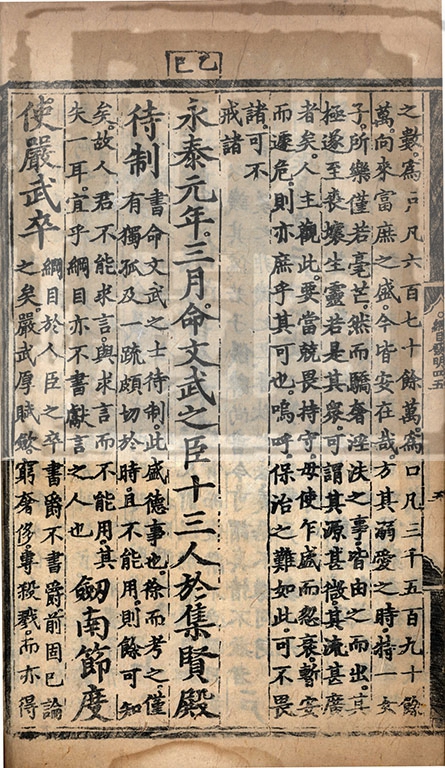 乙巳
之數。爲口凡六百七十餘萬。爲口凡三千五百九十餘
萬。向來富庶之盛。今皆安在哉。方其溺愛之時。特一女
子。所樂僅若毫芒。然而驕奢淫泆之事。皆由之而出。其
極遂至喪壞生靈若是其衆。可謂其源甚微。其流甚廣
者矣。人主觀此。要當兢畏持守。毋使乍盛而忽衰。暫安
而遽危。則亦庶乎其可也。嗚呼。保治之難如此。可不畏
諸。可不
戒諸
永泰元年。三月。命文武之臣十三人於集賢殿
待制
書命文武之士待制。此盛德事也。徐而考之。僅
有獨孤及一疏。頗切於時。且不能用。則餘可知
矣。故人君不能求言。與求言而不能用。其
失一耳。宜乎綱目亦不書獻言之人也
劒南節度
使嚴武卒
綱目於人臣之卒。書爵不書爵。前固已論
之矣。嚴武厚賦斂。窮奢侈。專殺戮。而亦得